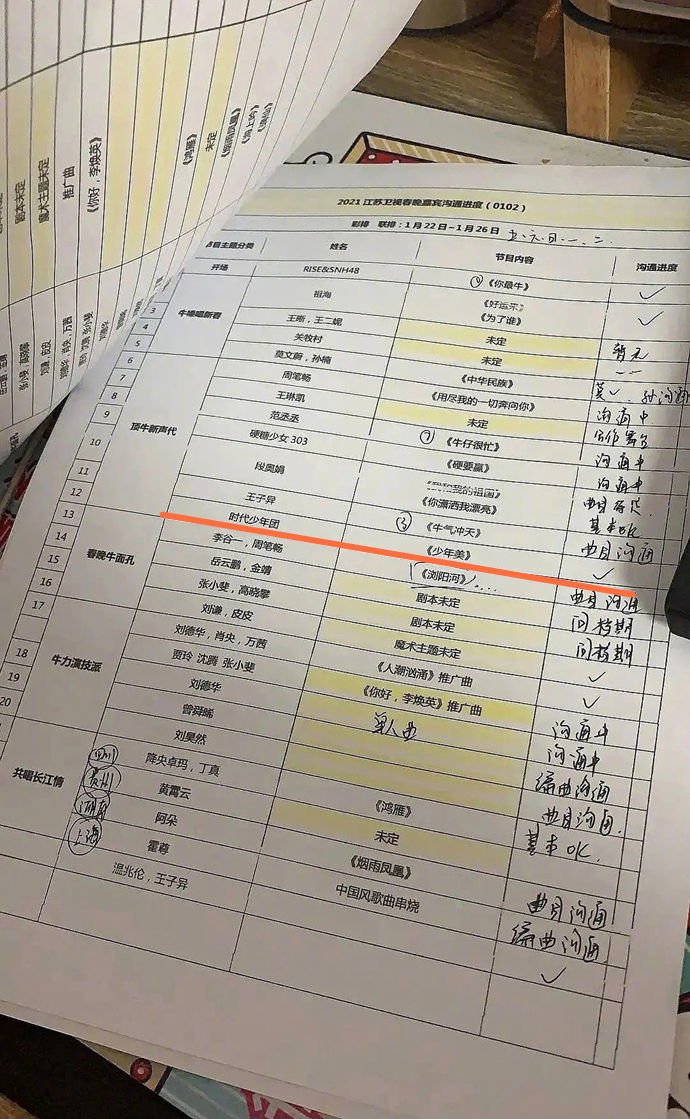 剧本未定
魔术主题未定
推广曲
《你好，李焕英》
《鸿雁》
未定
《烟雨凤凰》
《海上的》
张小斐，高晓攀
刘谦，皮皮
刘德华，肖央，万茜
2021 江苏卫视春晚嘉宾沟通进度（0102）
彩排 联排：1月22日~1月26日 五.六.日.一.二.
节目主题分类 姓名 节目内容 沟通进度
开场 RISE&SNH48 《你最牛》 ✓
3 牛嘟嘟新春 祖海 《好运来》
《为了谁》 ✓
4 王晰，王二妮 未定 暂无
5 关牧村 未定
6 莫文蔚，孙楠 《中华民族》
7 周笔畅 《用尽我的一切奔向你》 沟通中
8 王琳凯 未定
9 顶牛新声代 范丞丞 《牛仔很忙》 沟通中
10 硬糖少女 303 《硬要赢》 沟通中
11 段奥娟 我的祖国
《你潇洒我漂亮》 基本OK
12 王子异 《牛气冲天》 曲目沟通
13 时代少年团 《少年美》 ✓
14 春晚牛面孔 李谷一，周笔畅 《浏阳河》 曲目沟通
15 岳云鹏，金婧 剧本未定 问档期
16 张小斐，高晓攀 剧本未定 问档期
17 刘谦，皮皮 魔术主题未定 ✓
牛力演技派 刘德华，肖央，万茜 《人潮汹涌》推广曲 ✓
18 贾玲 沈腾 张小斐 《你好，李焕英》推广曲 沟通中
19 刘德华 单人曲 沟通中
20 曾舜晞 编曲沟通
刘昊然 曲目沟通
共唱长江情 四川 降央卓玛，丁真 《鸿雁》 基本OK.
贵州 黄霄云 未定
湖南 阿朵 《烟雨凤凰》 曲目沟通
上海 霍尊 中国风歌曲串烧 编曲沟通
温兆伦，王子异 ✓